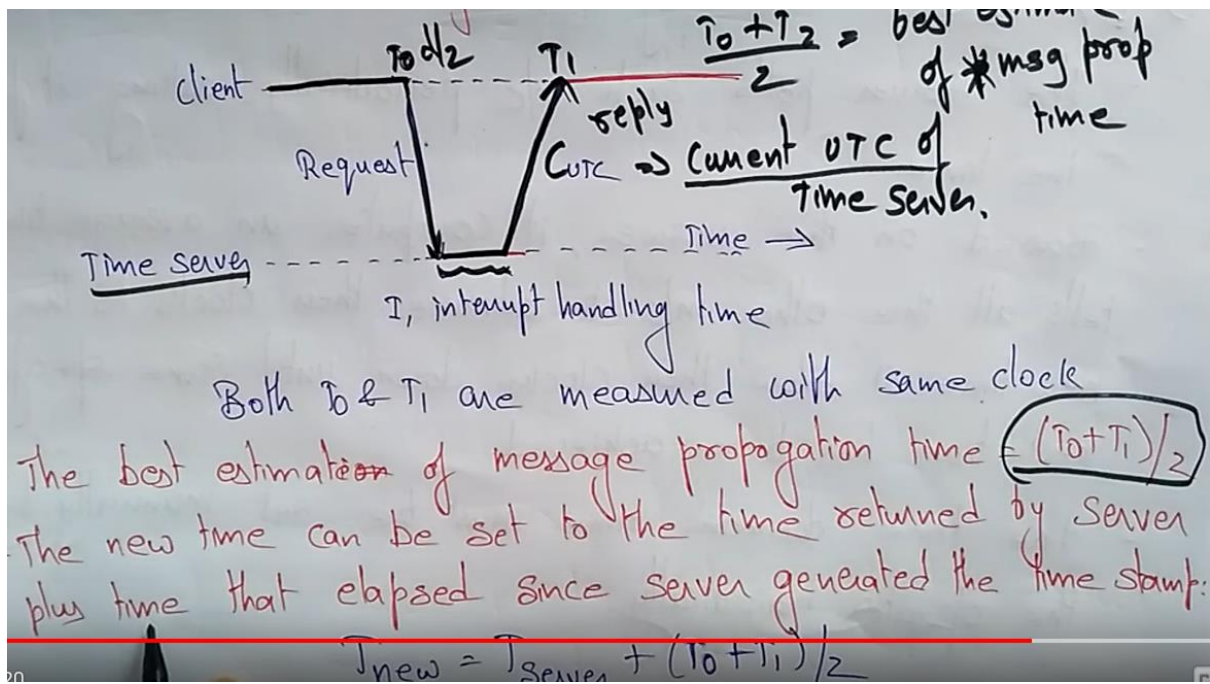 T0 d/2 T1 T0 + T2 / 2 = best
Client of msg prop
reply time
Request CUTC ⇒ Current UTC of
Time server.
Time server Time →
I, interrupt handling time
Both T0 & T1 are measured with same clock
The best estimation of message propogation time = (T0+T1)/2
The new time can be set to the time returned by server
plus time that elapsed since server generated the time stamp:
Tnew = Tserver + (T0+T1)/2
20